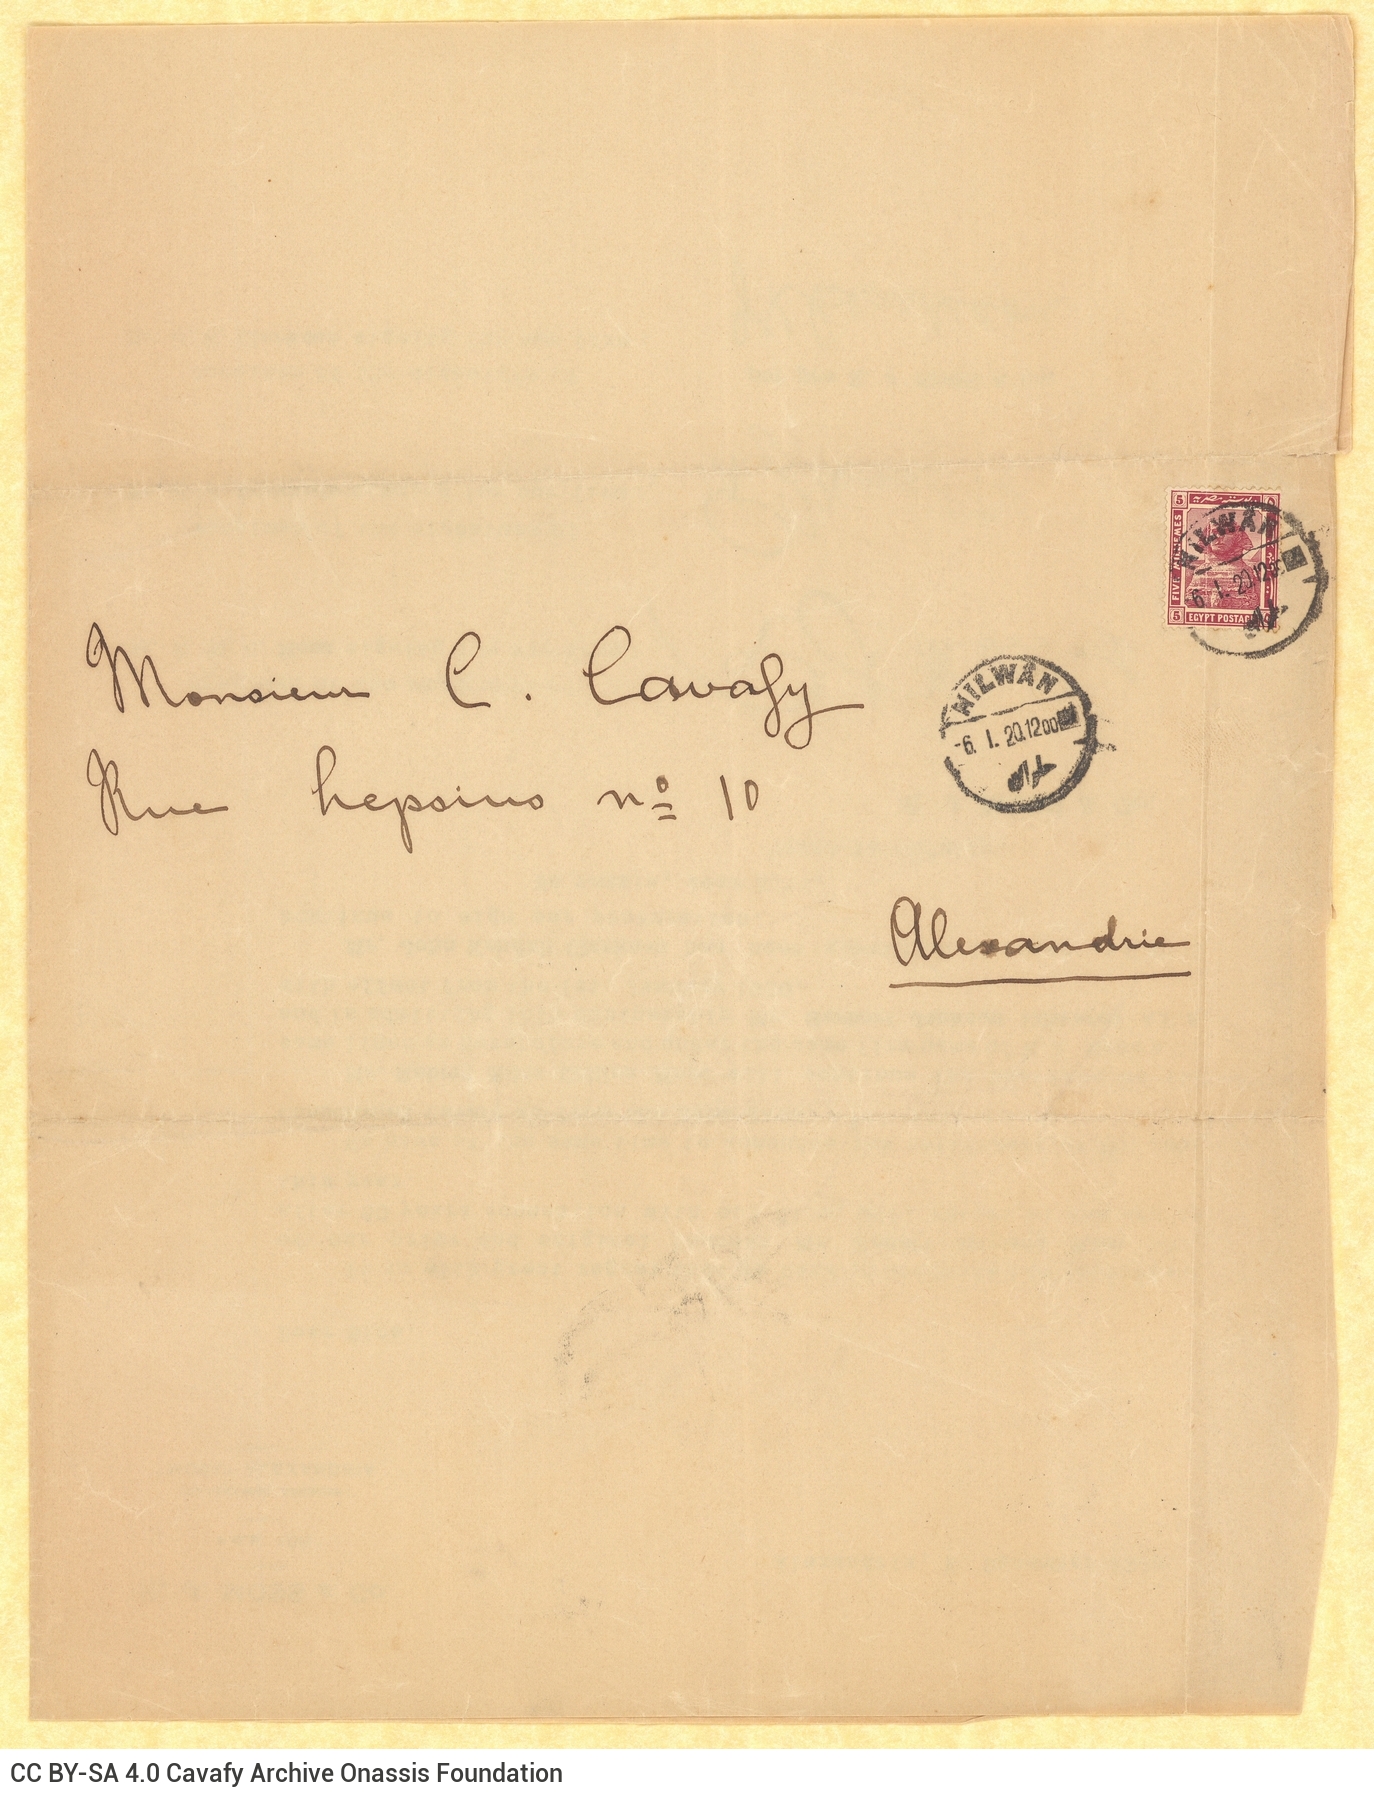 5
FIVE MILLIEMES
5 EGYPT POSTAGE
HILWÂN
6. I. 20.12
Monsieur C. Cavafy
HILWÂN
-6. I. 20.12 00
Rue Lepsius nº 10
Alexandrie
CC BY-SA 4.0 Cavafy Archive Onassis Foundation